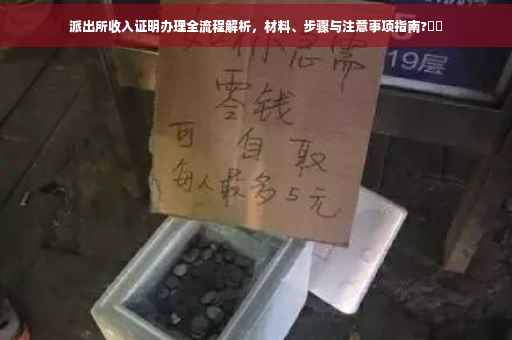 派出所收入证明办理全流程解析，材料、步骤与注意事项指南?
如你急需
零钱
可自取
每人最多5元
19层